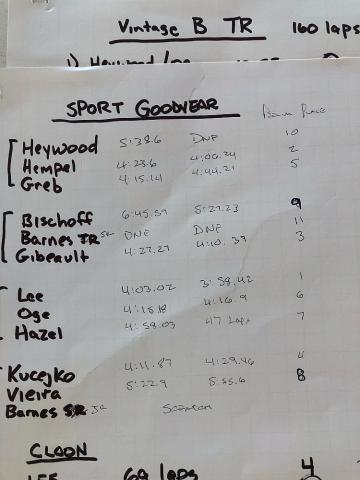 Vintage B TR 160 laps
1) Heywood
SPORT GOODYEAR
Heywood 5:38.6 DNF 10
Hempel 4:23.6 4:00.24 2
Greb 4:15.14 4:44.21 5
Bischoff 6:45.59 5:27.23 9
Barnes JR SR DNF DNF 11
Gibeault 4:27.27 4:10.39 3
Lee 4:03.02 3:58.42 1
Oge 4:18.18 4:16.9 6
Hazel 4:58.03 47 Laps 7
Kucejko 4:11.87 4:29.46 4
Vieira 5:22.9 5:55.6 8
Barnes SR JR
CLOON
LEE 69 laps 4